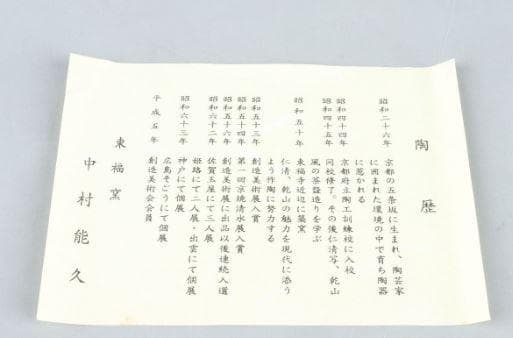 陶歴
昭和二十六年 京都の五条坂に生まれ、陶芸家
に囲まれた環境の中で育ち陶器
に惹かれる
昭和四十四年 京都府立陶工訓練校に入校
昭和四十五年 同校修了。その後仁清写、乾山
風の茶盌造りを学ぶ
昭和五十年 東福寺近辺に築窯
仁清、乾山の魅力を現代に添う
よう作陶に努力する
昭和五十三年 創造美術展入賞
第一回京焼清水展入賞
昭和五十六年 創造美術展に出品以後連続入選
昭和六十二年 佐賀玉屋にて三人展
姫路にて二人展・出雲にて個展
昭和六十三年 神戸にて個展
広島そごうにて個展
平成五年 創造美術会会員
東福窯
中村能久